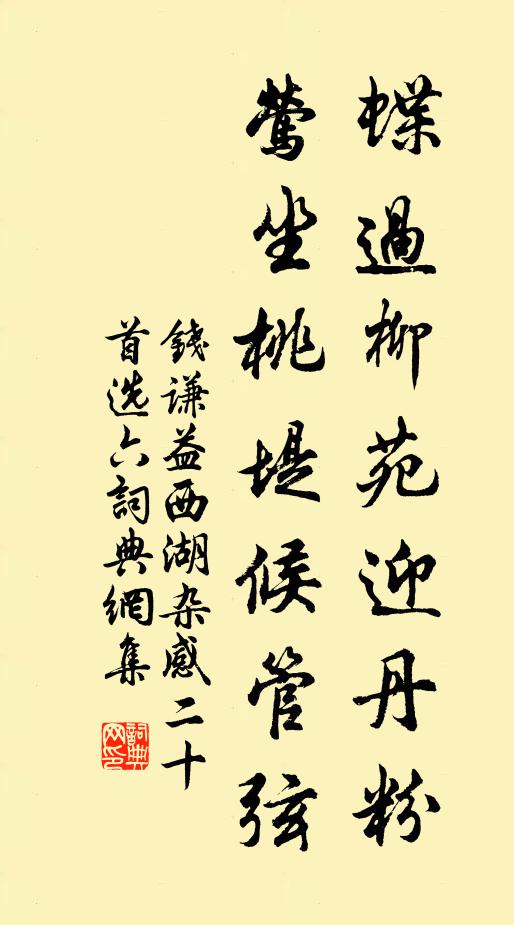 蝶過柳苑迎丹粉
鶯坐桃堤候管弦
錢謙益西湖杂感二十
首选六詞典網集
詞典
网印